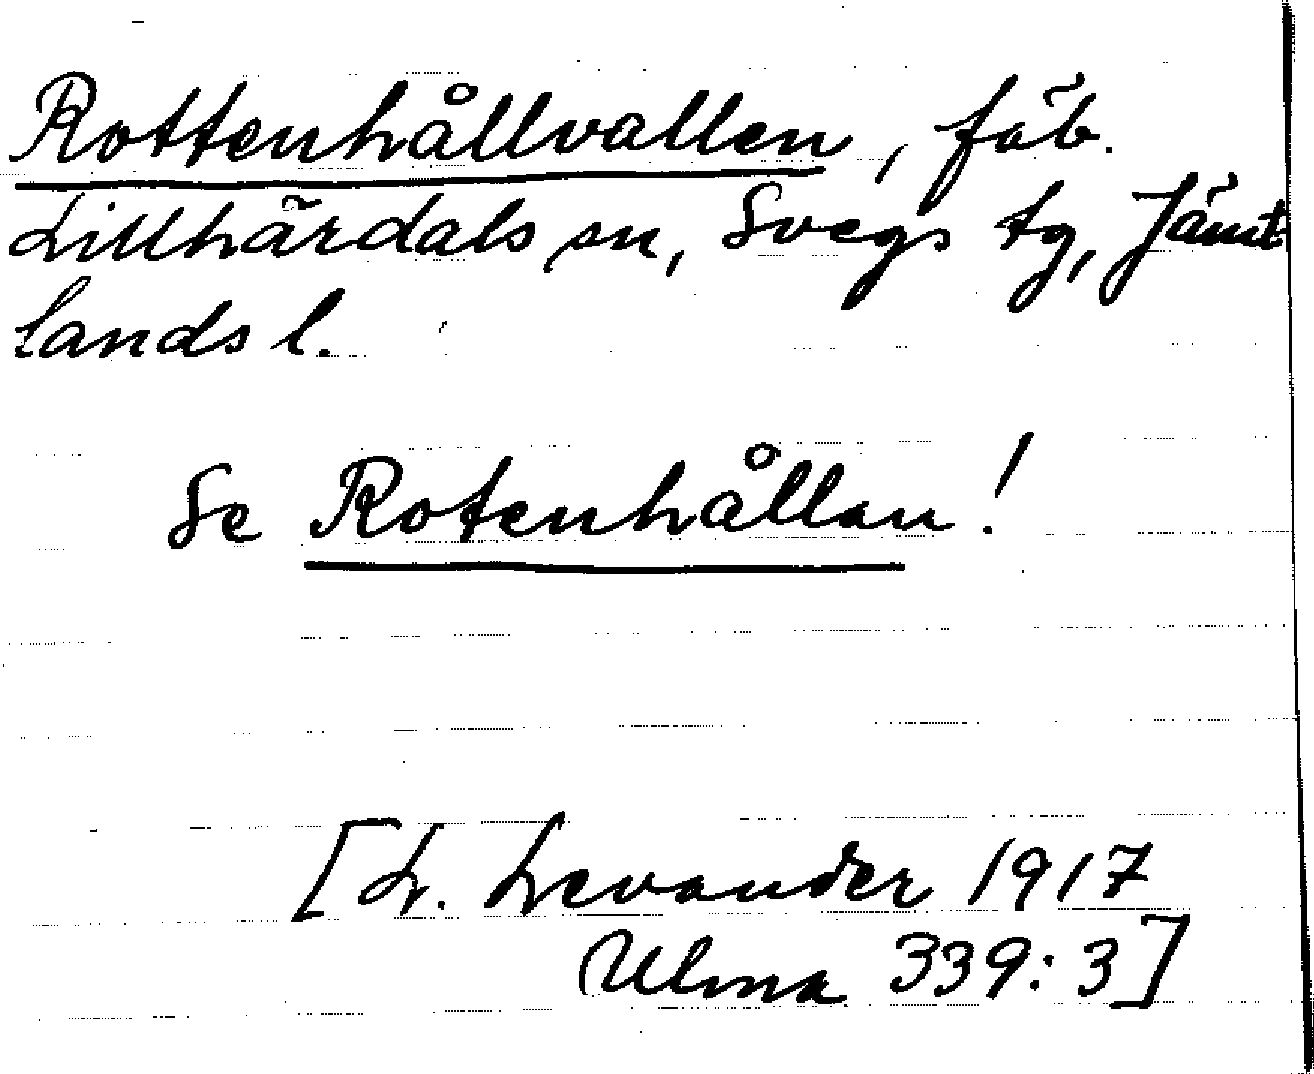 Rottenhållvallen, fäb.
Lillhärdals sn, Svegs tg, Jämt
lands l.
Se Rotenhållan!
[L. Levander 1917
Ulma 339:3]